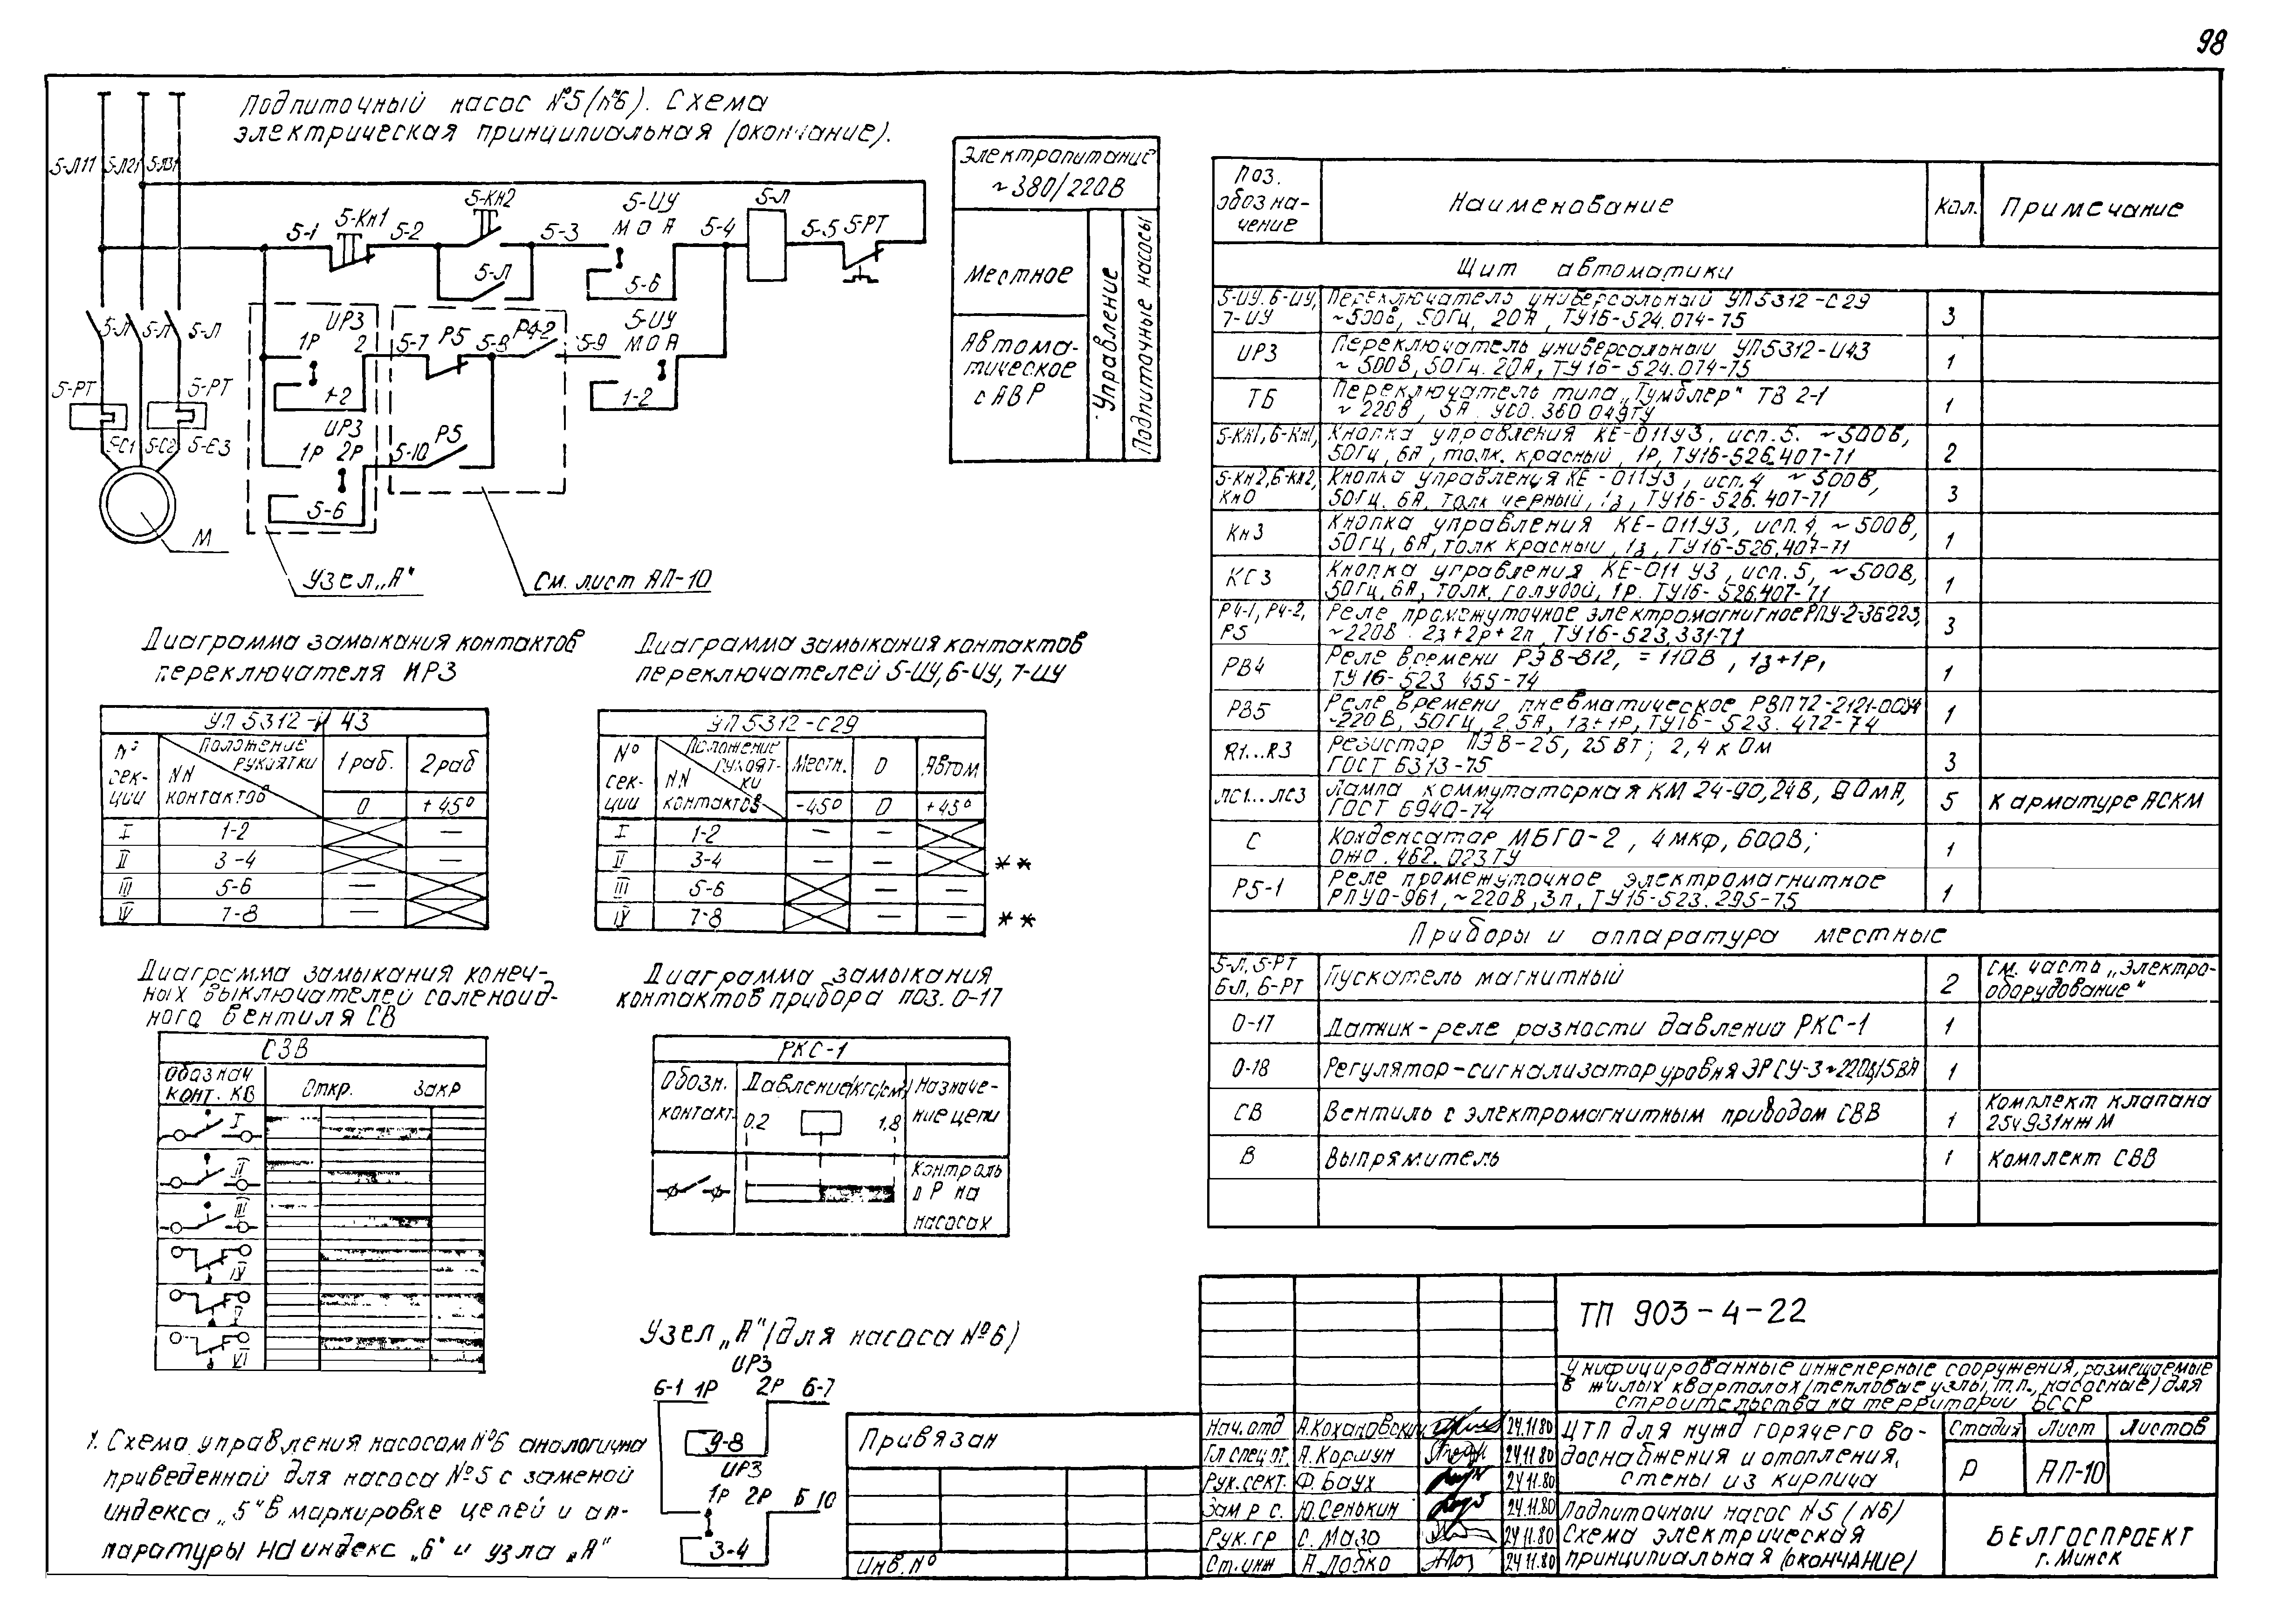 98
Подпиточный насос №5(№6). Схема
электрическая принципиальная (окончание).
5-Л11 5-Л21 5-Л31
5-1
5-Кн1
5-2
5-КН2
5-3
5-ИУ
М О А
5-4
5-Л
5-5
5-РТ
5-Л
5-6
5-Л 5-Л 5-Л
ИР3
1Р 2
1-2
5-7
Р5
5-8
Р4-2
5-9
5-ИУ
М О А
1-2
5-РТ
5-РТ
5-С1 5-С2 5-С3
ИР3
1Р 2Р
5-6
5-10
Р5
М
Узел „А"
См. лист АП-10
Электропитание
~380/220В
Местное
Автома-
тическое
с АВР
Управление
Подпиточные насосы
Диаграмма замыкания контактов
переключателя ИР3
УП 5312-И 43
№ сек-ции
Положение рукоятки
NN контактов
1 раб. 2 раб
0 +45°
I 1-2 —
II 3-4 —
III 5-6 —
IV 7-8 —
Диаграмма замыкания контактов
переключателей 5-ИУ, 6-ИУ, 7-ИУ
УП 5312-С29
№ сек-ции
Положение рукоят-ки
NN контактов
Местн. 0 Автом
-45° 0 +45°
I 1-2 — —
II 3-4 — — **
III 5-6 — —
IV 7-8 — — **
Диаграмма замыкания конеч-
ных выключателей соленоид-
ного вентиля СВ
СЗВ
Обознач конт. КВ
Откр. Закр
I
II
III
IV
V
VI
Диаграмма замыкания
контактов прибора поз. 0-17
РКС-1
Обозн. контакт.
Давление(кгс/см²)
0,2 1,8
Назначе-
ние цепи
Контроль
Р на
насосах
Узел „А"(для насоса №6)
ИР3
6-1 1Р 2Р 6-7
ИР3
1Р 2Р 6 10
3-4
1. Схема управления насосом №6 аналогична
приведенной для насоса №5 с заменой
индекса „5" в маркировке цепей и ап-
паратуры на индекс „6" и узла „А"
Поз. обозна-чение Наименование Кол. Примечание
Щит автоматики
5-ИУ, 6-ИУ, Переключатель универсальный УП5312-С29
7-ИУ ~500В, 50Гц, 20А, ТУ16-524.074-75 3
ИР3 Переключатель универсальный УП5312-И43
~500В, 50Гц. 20А, ТУ16-524.074-75 1
ТБ Переключатель типа „Тумблер" ТВ 2-1
~220В, 5А. УСО. 360 049ТУ 1
5-Кн1, 6-Кн1, Кнопка управления КЕ-011У3, исп. 5. ~500В,
50Гц, 6А, толк. красный, 1Р, ТУ16-526.407-71 2
5-Кн2, 6-Кн2, Кнопка управления КЕ-011У3, исп. 4 ~500В,
Кн0 50Гц. 6А, толк черный, 1з, ТУ16-526.407-71 3
Кн3 Кнопка управления КЕ-011У3, исп. 4, ~500В,
50Гц, 6А, толк красный, 1з, ТУ16-526.407-71 1
КС3 Кнопка управления КЕ-011 У3, исп. 5, ~500В,
50Гц, 6А, толк. голубой, 1Р. ТУ16-526.407-71 1
Р4-1, Р4-2, Реле промежуточное электромагнитное РПУ-2-36223,
Р5 ~220В. 2з+2р+2п, ТУ16-523.331-71 3
РВ4 Реле времени РЭВ-812, =110В, 1з+1р,
ТУ16-523 455-74 1
РВ5 Реле времени пневматическое РВП72-2121-00У4
~220В, 50Гц, 2,5А, 1з+1Р, ТУ16-523.472-74 1
R1...R3 Резистор ПЭВ-25, 25Вт; 2,4 кОм
ГОСТ 6513-75 3
ЛС1...ЛС3 Лампа коммутаторная КМ 24-90, 24В, 90мА,
ГОСТ 6940-74 5 К арматуре АСКМ
С Конденсатор МБГО-2, 4мкф, 600В;
ОЖО.462.023ТУ 1
Р5-1 Реле промежуточное электромагнитное
РПУ0-961, ~220В, 3п, ТУ16-523.295-75 1
Приборы и аппаратура местные
5-Л, 5-РТ
6Л, 6-РТ Пускатель магнитный 2 См. часть „Электро-
оборудование"
0-17 Датчик-реле разности давлений РКС-1 1
0-18 Регулятор-сигнализатор уровня ЭРСУ-3 ~220В, 15ВА 1
СВ Вентиль с электромагнитным приводом СВВ 1 Комплект клапана
25ч931нжМ
В Выпрямитель 1 Комплект СВВ
ТП 903-4-22
Унифицированные инженерные сооружения, размещаемые
в жилых кварталах (тепловые узлы, т.п., насосные) для
строительства на территории БССР
Нач. отд А.Кохановский 24.11.80
Гл спец от. А. Коршун 24.11.80
Рук. сект. Ф. Баух 24.11.80
Зам р с. Ю. Сенькин 24.11.80
Рук. гр С. Мазо 24.11.80
Ст. инж А. Лобко 24.11.80
ЦТП для нужд горячего во-
доснабжения и отопления,
стены из кирпича
Стадия Лист Листов
Р АП-10
Подпиточный насос N5 (N6)
Схема электрическая
принципиальная (окончание)
БЕЛГОСПРОЕКТ
г. Минск
Привязан
Инв. №